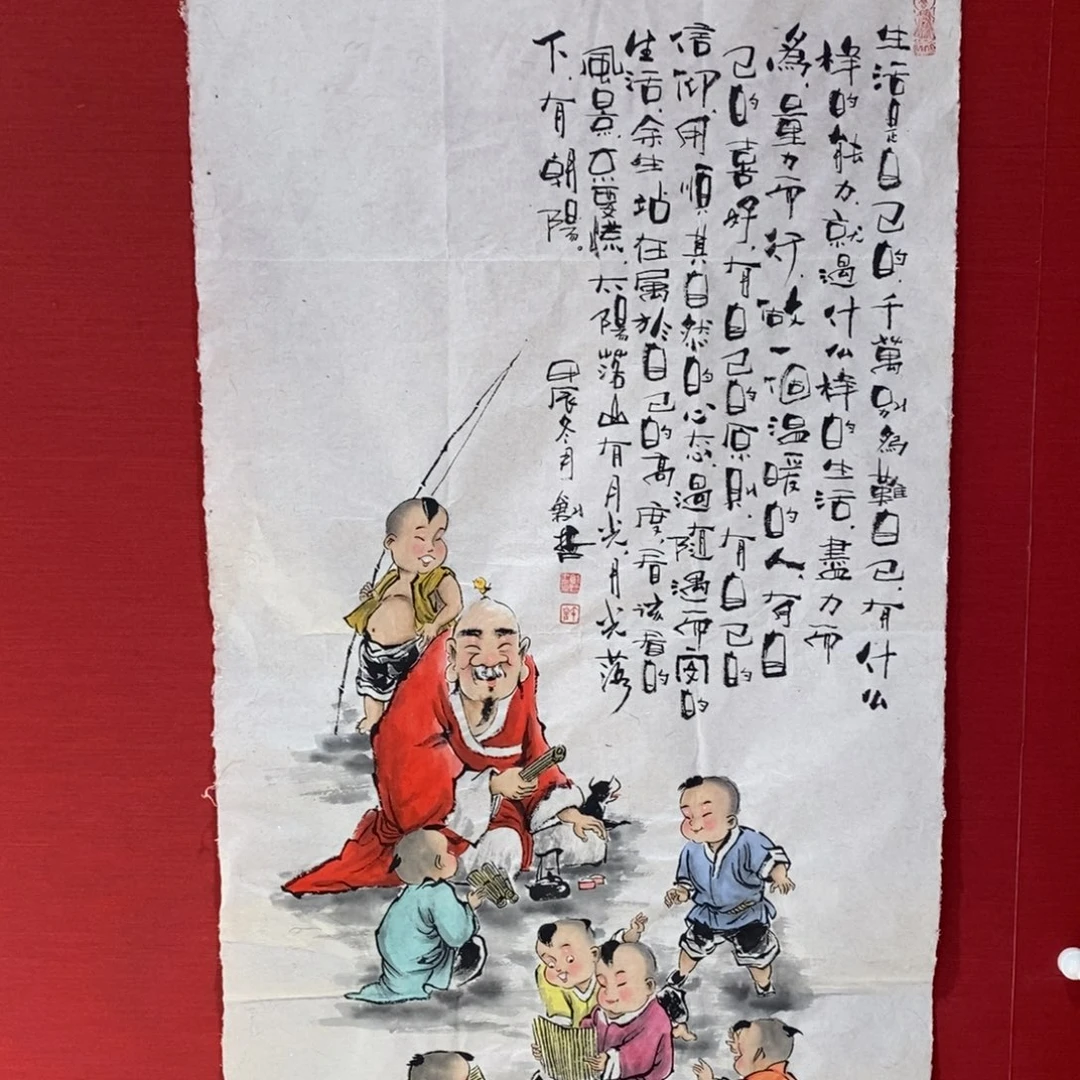 生活是自己的,千萬别為難自己,有什么
样的能力,就過什么样的生活,盡力而
為,量力而行,做一個温暖的人,有自
己的喜好,有自己的原則,有自己的
信仰,用順其自然的心态,過随遇而安的
生活,余生站在属於自己的高度看该看的
風景,不要慌,太陽落山有月光,月光落
下,有朝陽。
甲辰冬月